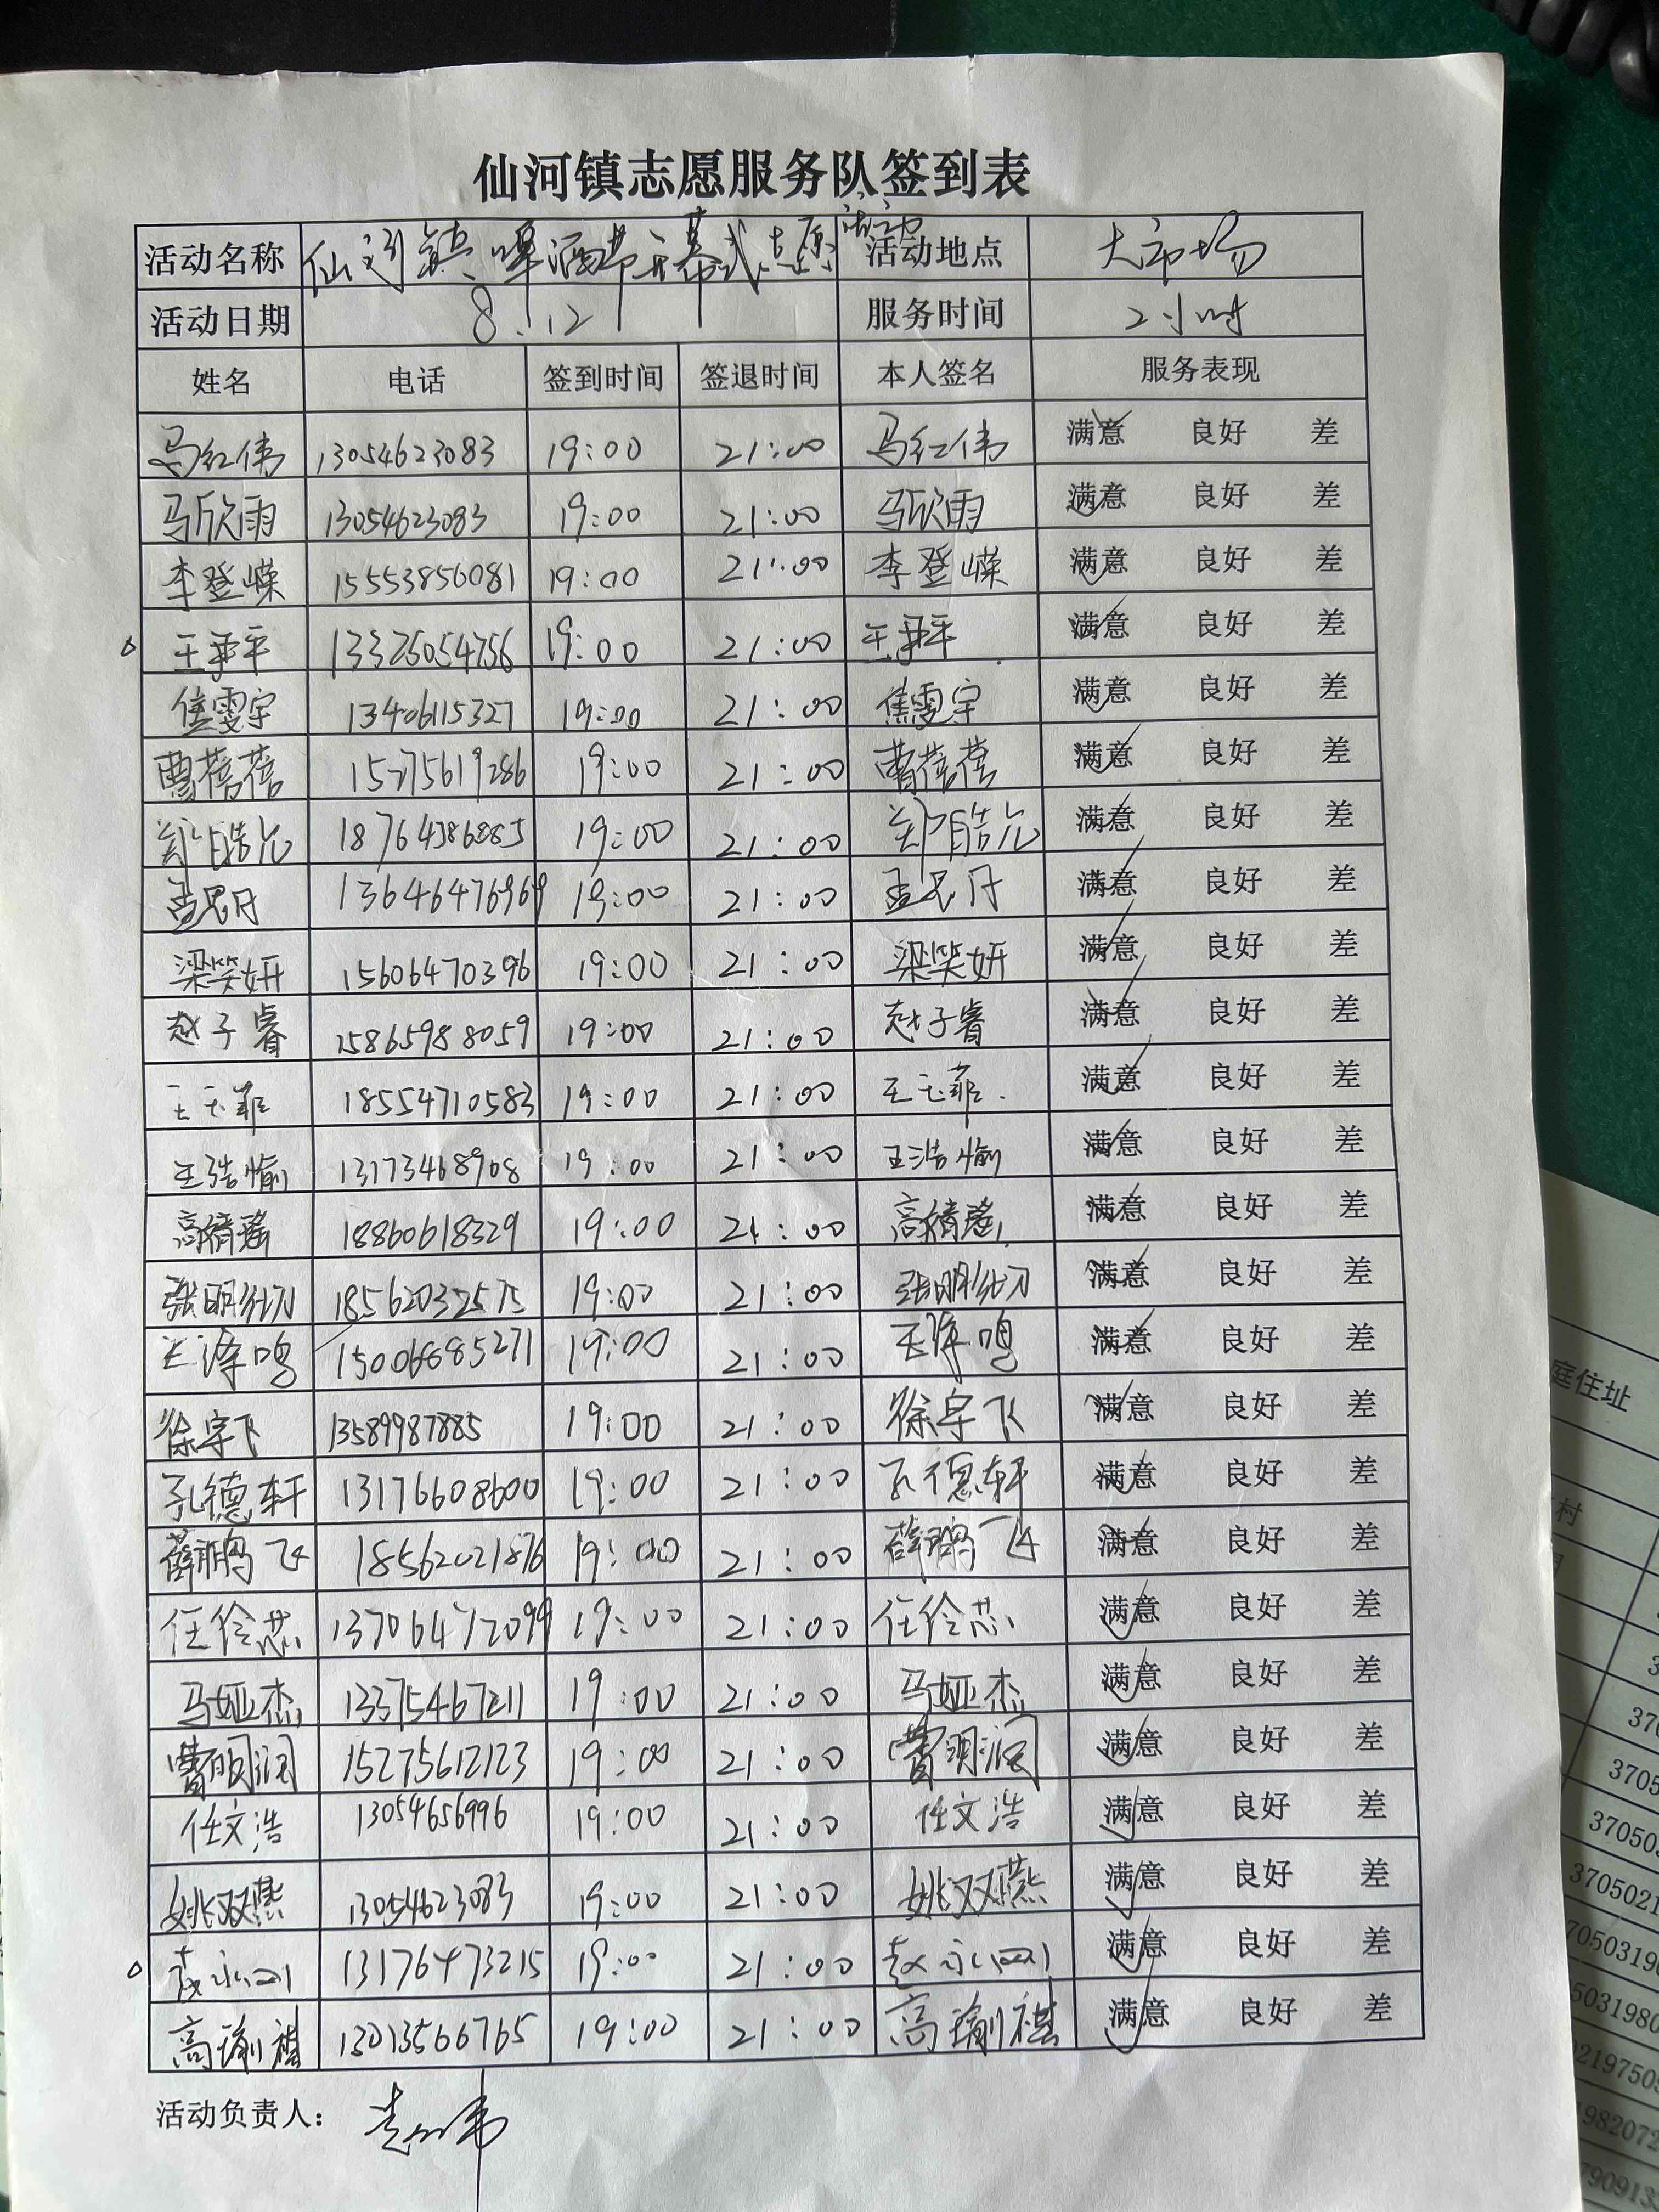 仙河镇志愿服务队签到表
活动名称 仙河镇啤酒节开幕式志愿活动 活动地点 大市场
活动日期 8.12 服务时间 2小时
姓名 电话 签到时间 签退时间 本人签名 服务表现
马红伟 13054623083 19:00 21:00 马红伟 满意 良好 差
马欣雨 13054623083 19:00 21:00 马欣雨 满意 良好 差
李登嵘 15553856081 19:00 21:00 李登嵘 满意 良好 差
王平平 13325054756 19:00 21:00 王平平 满意 良好 差
焦雯宇 13406115327 19:00 21:00 焦雯宇 满意 良好 差
曹蓓蓓 15275619286 19:00 21:00 曹蓓蓓 满意 良好 差
郑皓允 18764386885 19:00 21:00 郑皓允 满意 良好 差
孟昆丹 13646476969 19:00 21:00 孟昆丹 满意 良好 差
梁笑妍 15606470396 19:00 21:00 梁笑妍 满意 良好 差
赵子睿 15865988059 19:00 21:00 赵子睿 满意 良好 差
王玉菲 18554710583 19:00 21:00 王玉菲 满意 良好 差
王浩愉 13173468908 19:00 21:00 王浩愉 满意 良好 差
高婧瑶 18860618329 19:00 21:00 高婧瑶 满意 良好 差
张明 18562032575 19:00 21:00 张明 满意 良好 差
王泽鸣 15006885271 19:00 21:00 王泽鸣 满意 良好 差
徐宇飞 13589987885 19:00 21:00 徐宇飞 满意 良好 差
孔德轩 13176608600 19:00 21:00 孔德轩 满意 良好 差
薛鹏飞 18562021876 19:00 21:00 薛鹏飞 满意 良好 差
任伶芯 13706472099 19:00 21:00 任伶芯 满意 良好 差
马娅杰 13375467211 19:00 21:00 马娅杰 满意 良好 差
曹明润 15275612123 19:00 21:00 曹明润 满意 良好 差
任文浩 13054656996 19:00 21:00 任文浩 满意 良好 差
姚双燕 13054623083 19:00 21:00 姚双燕 满意 良好 差
赵永 13176473215 19:00 21:00 赵永 满意 良好 差
高瑜祺 13013566765 19:00 21:00 高瑜祺 满意 良好 差
活动负责人：
庭住址
村
3705
37050
3705021
7050319
5031980
2219750
1982072
790913